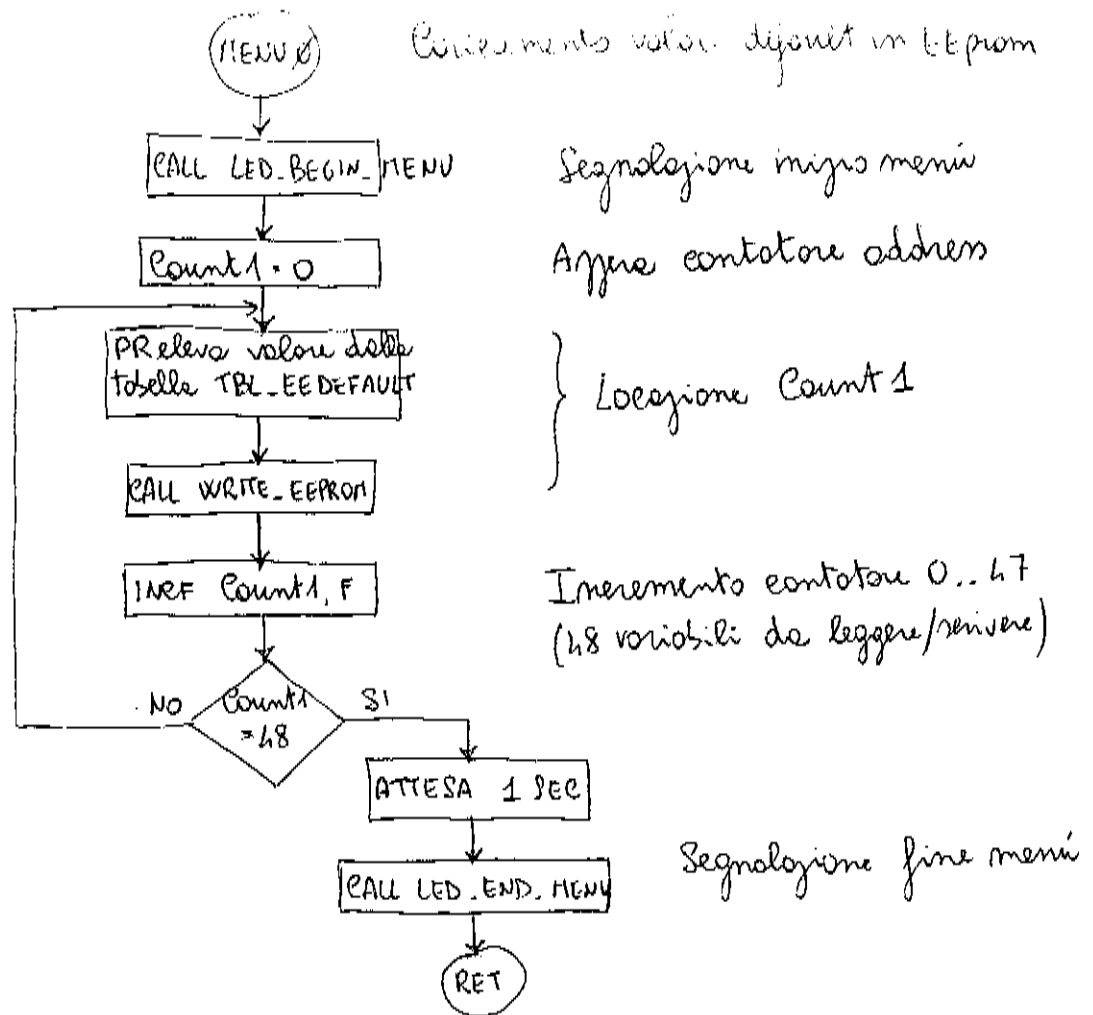 MENU Ø
Caricamento valori default in EEprom
CALL LED_BEGIN_MENU
Segnalazione inizio menù
Count1 = 0
Azzera contatore address
PReleva valore dalla
tabella TBL_EEDEFAULT
Locazione Count 1
CALL WRITE_EEPROM
INCF Count1, F
Incremento contatore 0..47
(48 variabili da leggere/scrivere)
NO
Count1
=48
SI
ATTESA 1 SEC
CALL LED_END_MENU
Segnalazione fine menù
RET